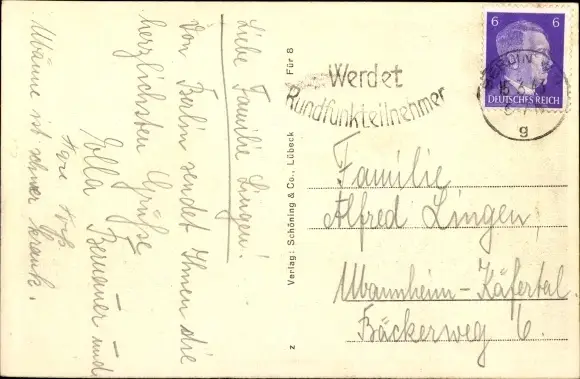 Liebe Familie Lingen!
Von Berlin sendet Ihnen die
herzlichsten Grüße
Ella Bernauer und
Männe ist schwer krank.
Für 8
Verlag: Schöning & Co., Lübeck
z
Werdet
Rundfunkteilnehmer
6 6
DEUTSCHES REICH
BERLIN
g
Familie
Alfred Lingen,
Mannheim-Käfertal.
Bäckerweg 6.